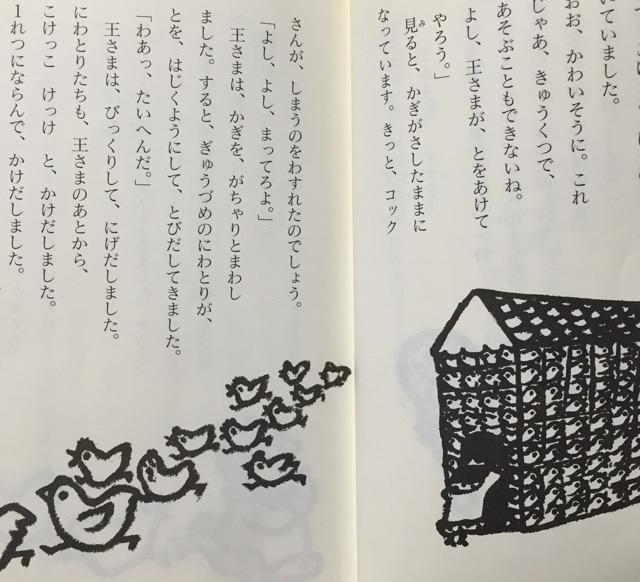 いていました。
おお、かわいそうに。これ
じゃあ、きゅうくつで、
あそぶこともできないね。
よし、王さまが、とをあけて
やろう。」
見ると、かぎがさしたままに
なっています。きっと、コック
さんが、しまうのをわすれたのでしょう。
「よし、よし、まってろよ。」
王さまは、かぎを、がちゃりとまわし
ました。すると、ぎゅうづめのにわとりが、
とを、はじくようにして、とびだしてきました。
「わあっ、たいへんだ。」
王さまは、びっくりして、にげだしました。
にわとりたちも、王さまのあとから、
こけっこ けっけ と、かけだしました。
1れつにならんで、かけだしました。